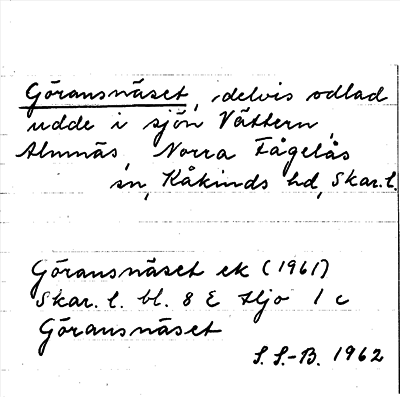 Göransnäset, delvis odlad
udde i sjön Vättern,
Almnäs, Norra Fågelås
sn, Kåkinds hd, Skar.l.
Göransnäset ek (1961)
Skar. l. bl. 8 E Hjo 1 c
Göransnäset
S. S.-B. 1962